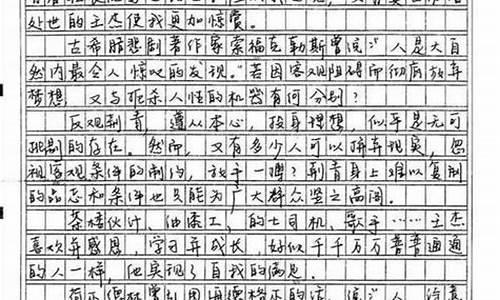 处世的王杰使我更加惊赏。
古希腊悲剧著作家索福克勒斯曾说:"人是大自
然内最令人惊叹的发现。"若因客观阻碍而彻底放弃
梦想,又与抠杀人性的机器有何分别?
反观荆青,遵从本心,投身理想,似乎是无可
挑剔的存在。然而,又有多少人可以摒弃现实,忽
视客观条件的制约,放手一搏?荆青身上难以复制
的品忌和条件也只能为广大群众竖之高阁。
茶楼伙计、油漆工、的士司机、歌手……王杰
喜欢并感恩,学习并成长,好似千千万万普普通通
的人一样,他实现了自我的满足。